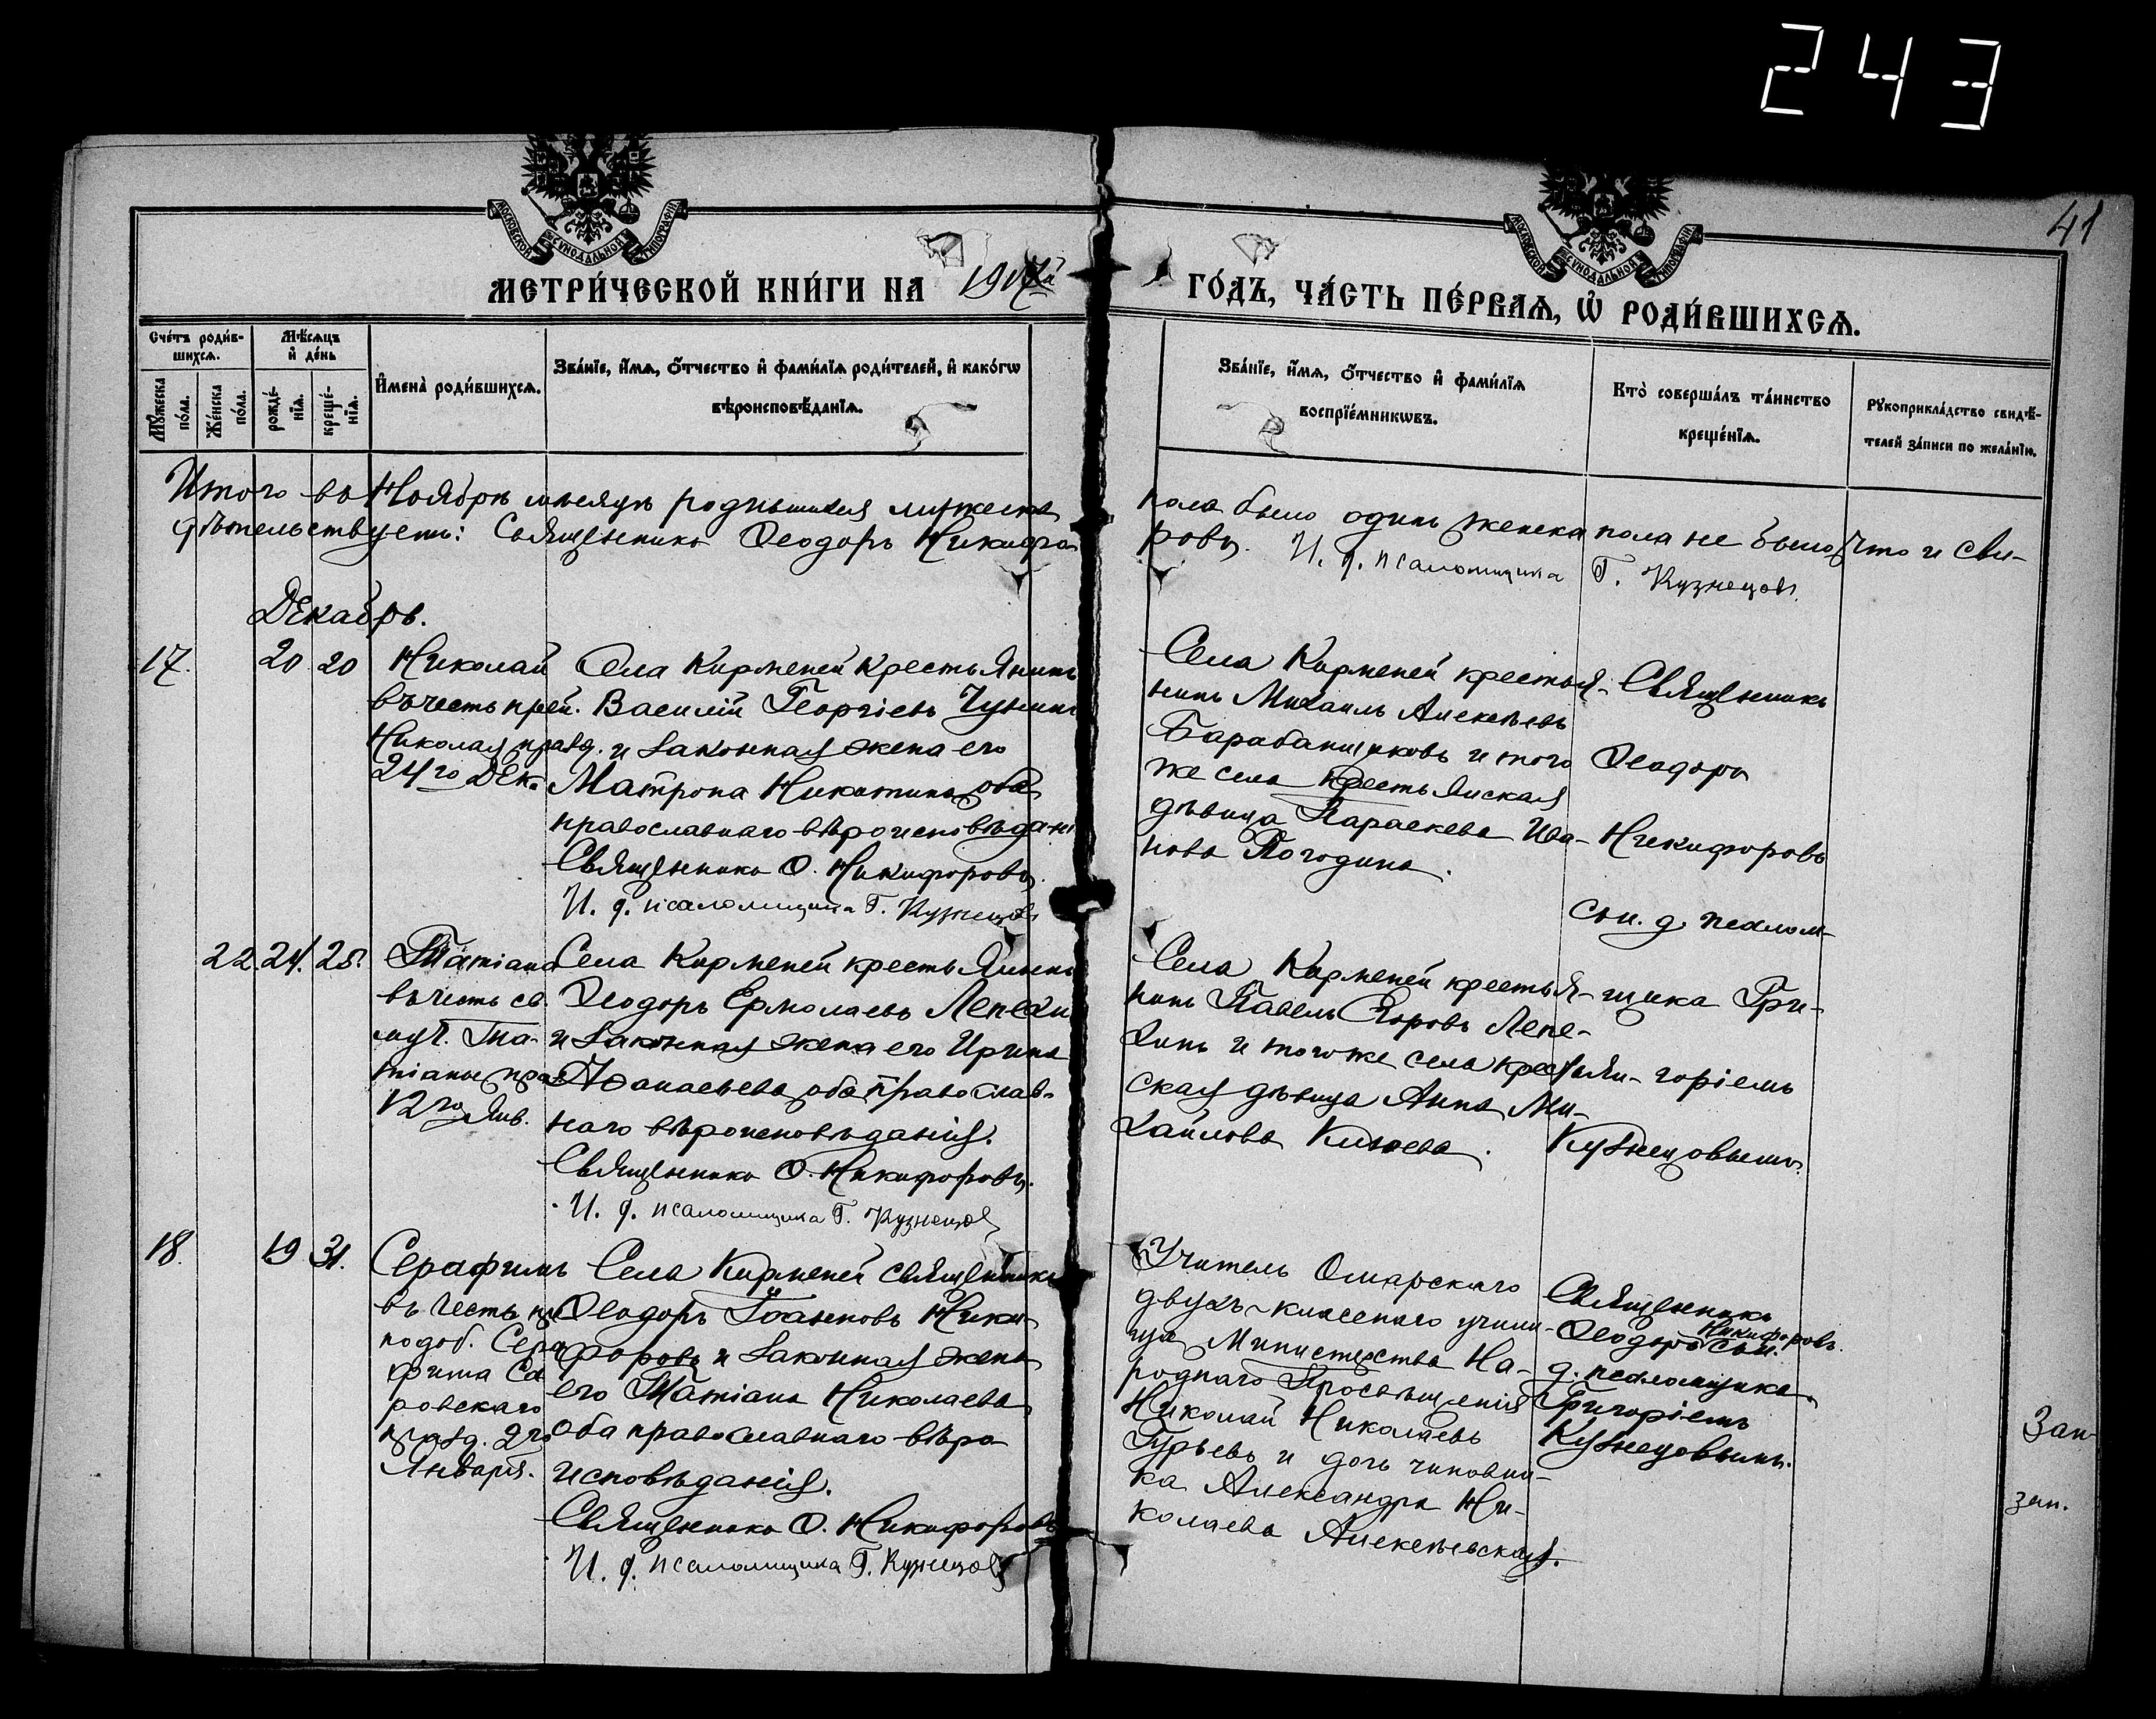 243
41
МОСКОВСКОЙ СѴНОДАЛЬНОЙ ТИПОГРАФІИ
МОСКОВСКОЙ СѴНОДАЛЬНОЙ ТИПОГРАФІИ
МЕТРИ́ЧЕСКОЙ КНИ́ГИ НА 1917й ГО́ДЪ, ЧА́СТЬ ПЕ́РВАѦ, Ѡ҆ РОДИ́ВШИХСѦ.
Сче́тъ роди́в-
шихсѧ.
Мѣ́сѧцъ
и҆ де́нь
Мꙋ́жеска
по́ла.
Же́нска
по́ла.
рожде́-
нїѧ.
креще́-
нїѧ.
И҆мена̀ роди́вшихсѧ.
Зва́нїе, и҆́мѧ, ѻ҆́тчество и҆ фами́лїѧ роди́телей, и҆ како́гѡ
вѣроисповѣ́данїѧ.
Зва́нїе, и҆́мѧ, ѻ҆́тчество и҆ фами́лїѧ
воспрїе́мникѡвъ.
Кто̀ соверша́лъ та́инство
креще́нїѧ.
Рꙋкоприкла́дство свидѣ́-
телей за́писи по жела́нїю.
Итого въ Ноябрѣ мѣсяцѣ родившихся мужеска пола было одинъ женска пола не было, что и сви-
дѣтельствуемъ: Священникъ Ѳеодоръ Никифоровъ.
И. д. псаломщика Г. Кузнецовъ.
Декабрь.
17. 20 20
Николай
въ честь преп.
Николая празд.
24го Дек.
Села Кирменей крестьянинъ
Василій Георгіевъ Чунинъ
и законная жена его
Матрона Никитина, оба
православнаго вѣроисповѣдані
Священникъ Ѳ. Никифоровъ.
И. д. псаломщика Г. Кузнецовъ
Села Кирменей крестья-
нинъ Михаилъ Алексѣевъ
Барабанщиковъ и того
же села крестьянская
дѣвица Параскева Ива-
нова Погодина.
Священникъ
Ѳеодоръ
Никифоровъ
съ и. д. псалом-
щика Гри-
горіемъ
Кузнецовымъ.
22. 24. 25.
Татіана
въ честь св.
муч. Та-
тіаны, праз
12го Янв.
Села Кирменей крестьянинъ
Ѳеодоръ Ермолаевъ Лепехи
и законная жена его Ирина
Аѳанасьева, оба православ-
наго вѣроисповѣданія.
Священникъ Ѳ. Никифоровъ.
И. д. псаломщика Г. Кузнецовъ
Села Кирменей крестья-
нинъ Павелъ Егоровъ Лепе-
хинъ и того же села крестьян-
ская дѣвица Анна Ми-
хайлова
18. 19 31.
Серафимъ
въ честь пре
подоб. Сера
фима Са
ровскаго
празд. 2го
Января.
Села Кирменей священникъ
Ѳеодоръ Іоанновъ Ники-
форовъ и законная жена
его Татіана Николаева
оба православнаго вѣро-
исповѣданія.
Священникъ Ѳ. Никифоровъ
И. д. псаломщика Г. Кузнецовъ
Учитель Омарскаго
двухъ-класснаго учили-
ща Министерства На-
роднаго Просвѣщенія
Николай Николаевъ
Гурьевъ и дочь чиновни-
ка Александра Ни-
колаева Алексѣевская.
Священникъ
Ѳеодоръ Никифоровъ
съ и.
д. псаломщика
Григоріемъ
Кузнецовымъ.
Зап
зап.